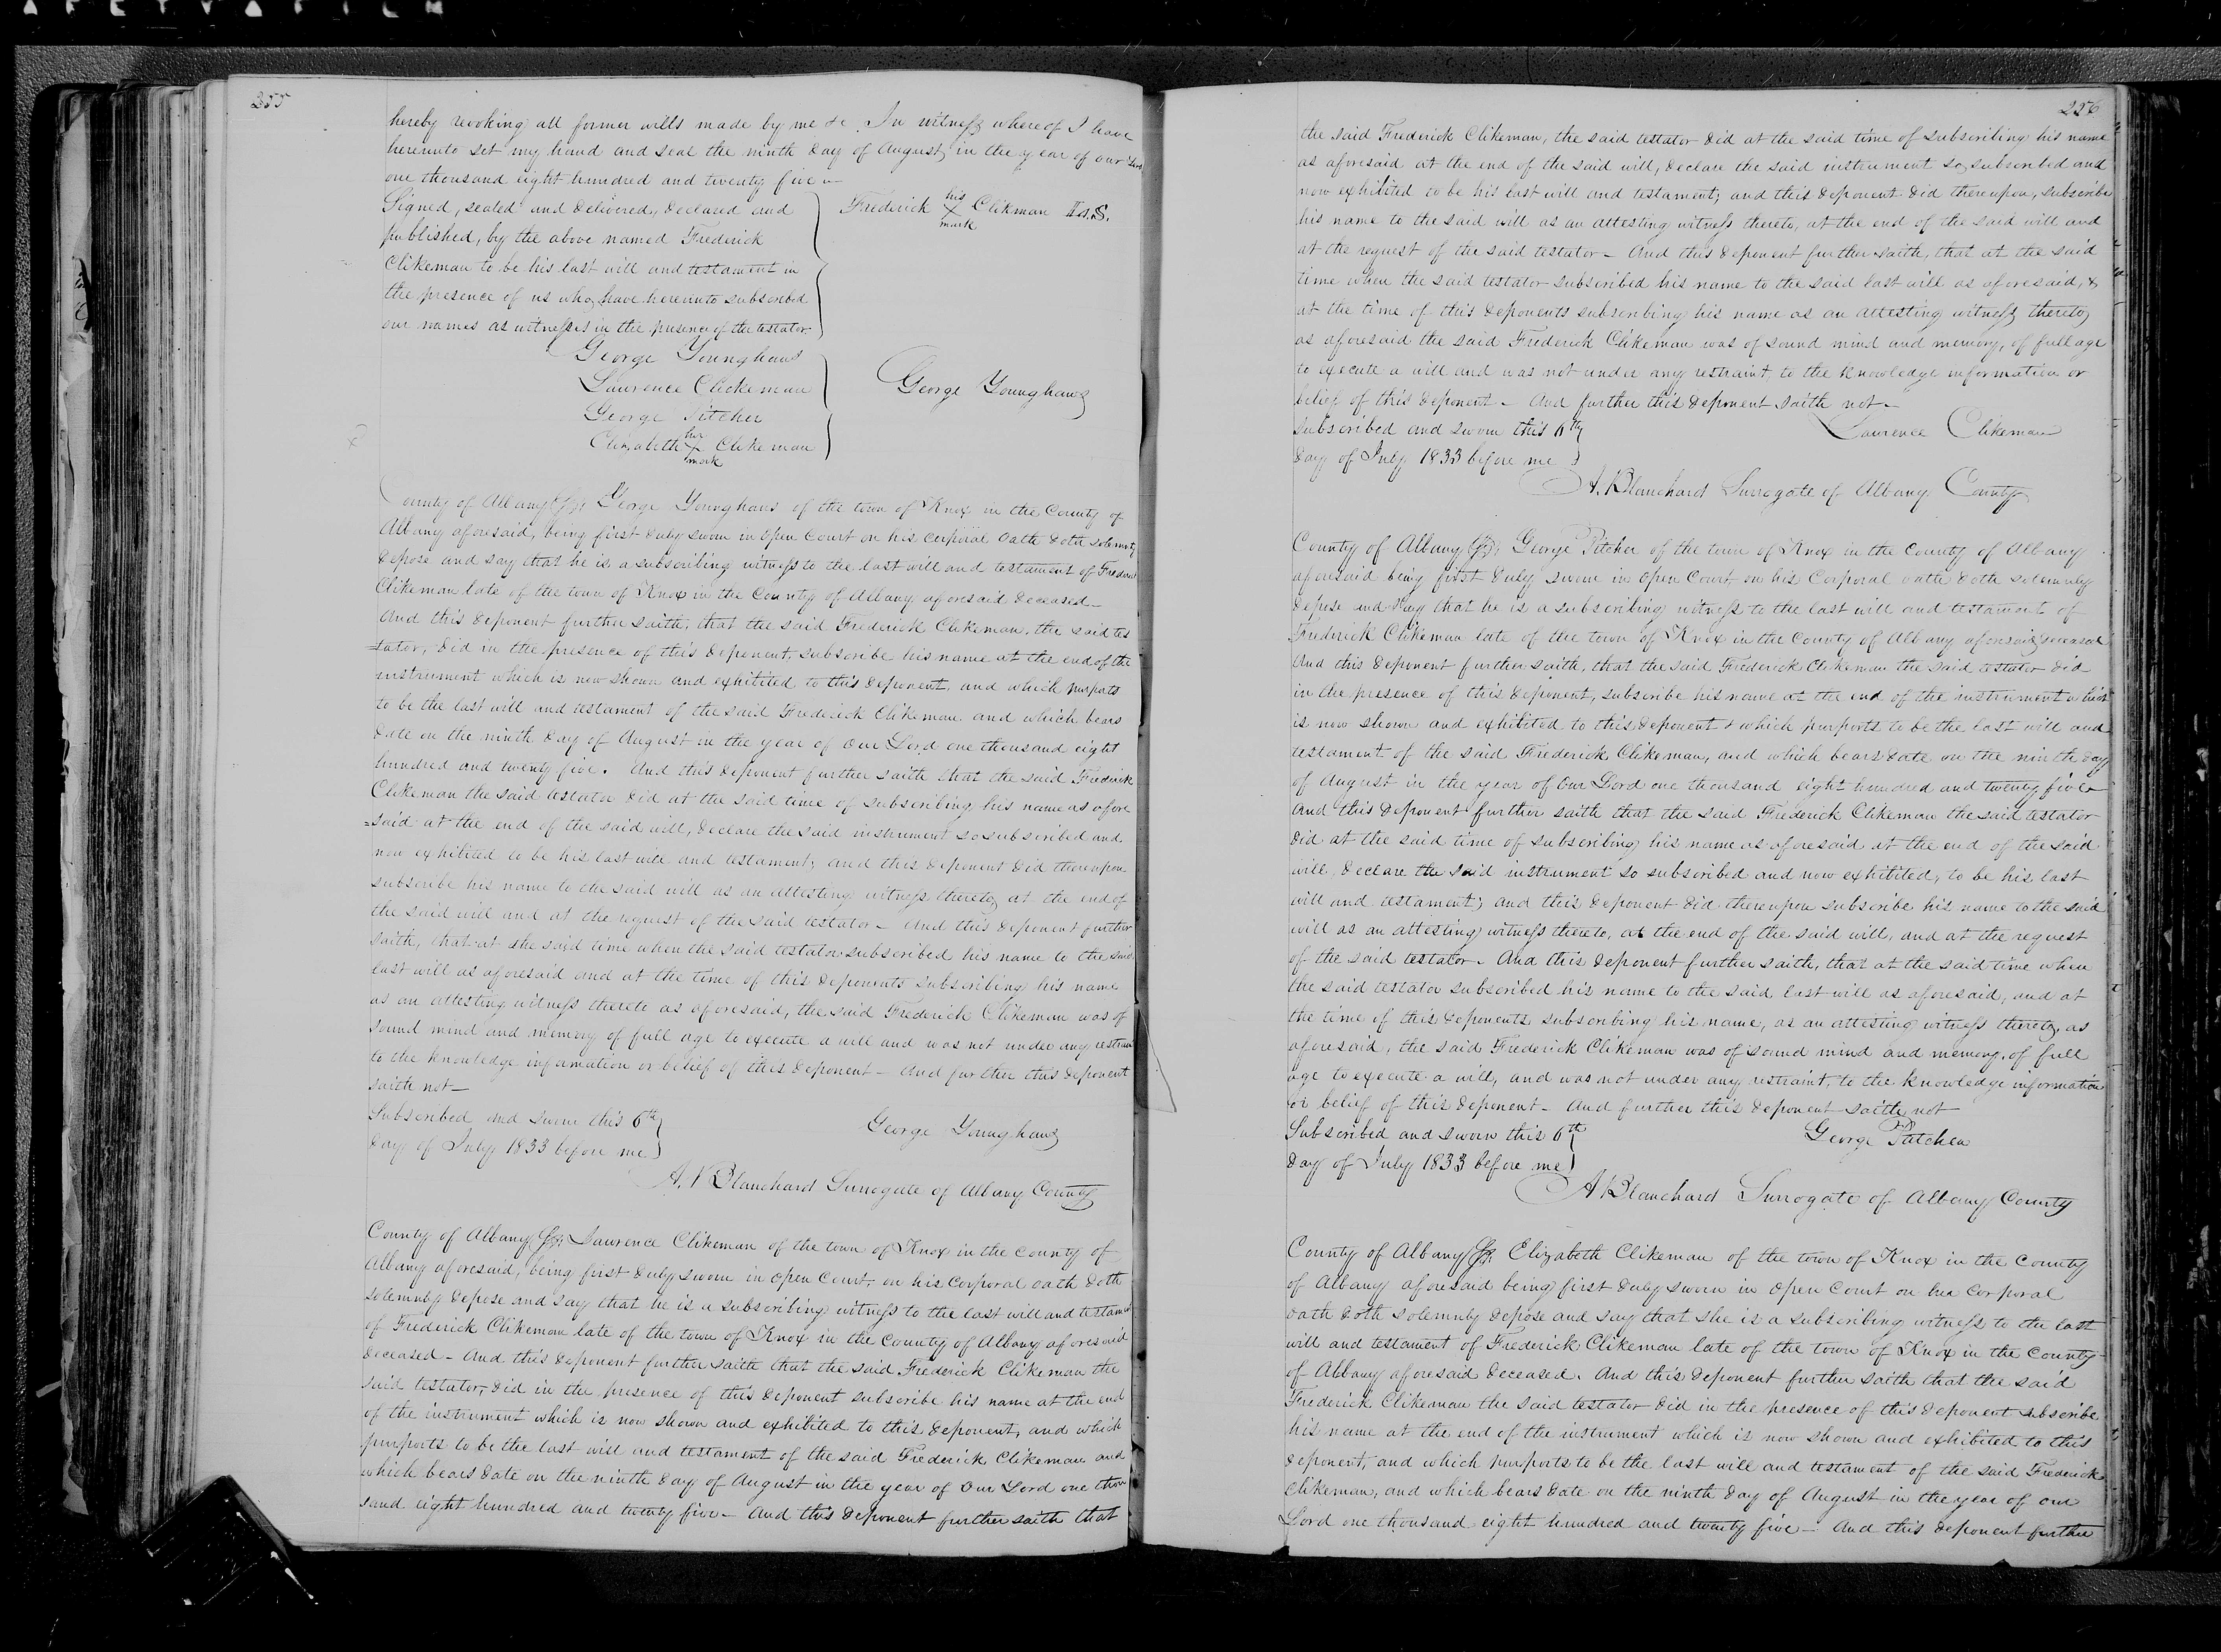 255
hereby revoking all former wills made by me &c. In witness whereof I have
hereunto set my hand and seal the ninth day of August, in the year of our Lord
one thousand eight hundred and twenty five
Signed, sealed and delivered, declared and
published, by the above named Frederick
Clikeman to be his last will and testament in
the presence of us who have hereunto subscribed
our names as witnesses in the presence of the testator
Frederick his X mark Clikman L.S.
George Younghans
Lawrence Clickeman
George Pitcher
Elizabeth her X mark Clikeman
George Younghans
County of Albany Ss; George Younghans of the town of Knox in the County of
Albany aforesaid, being first duly sworn in open Court on his corporal oath doth solemnly
depose and say that he is a subscribing witness to the last will and testament of Frederick
Clikeman late of the town of Knox in the County of Albany aforesaid deceased –
And this deponent further saith, that the said Frederick Clikeman, the said tes
=tator, did in the presence of this deponent, subscribe his name at the end of the
instrument which is now shown and exhibited to this deponent, and which purports
to be the last will and testament of the said Frederick Clikeman and which bears
date on the ninth day of August in the year of our Lord one thousand eight
hundred and twenty five. And this deponent further saith that the said Frederick
Clikeman the said testator did at the said time of subscribing his name as afore
=said at the end of the said will, declare the said instrument so subscribed and
now exhibited to be his last will and testament; and this deponent did thereupon
subscribe his name to the said will as an attesting witness thereto, at the end of
the said will and at the request of the said testator – And this deponent further
saith, that at the said time when the said testator subscribed his name to the said
last will as aforesaid and at the time of this deponents subscribing his name
as an attesting witness thereto as aforesaid, the said Frederick Clikeman was of
sound mind and memory of full age to execute a will and was not under any restraint
to the knowledge information or belief of this deponent – And further this deponent
saith not –
Subscribed and sworn this 6th
day of July 1833 before me
George Younghans
A. Blanchard Surrogate of Albany County
County of Albany Ss; Lawrence Clikeman of the town of Knox in the County of
Albany aforesaid, being first duly sworn in open Court, on his corporal oath doth
solemnly depose and say that he is a subscribing witness to the last will and testament
of Frederick Clikeman late of the town of Knox in the County of Albany aforesaid
deceased – And this deponent further saith that the said Frederick Clikeman the
said testator, did in the presence of this deponent subscribe his name at the end
of the instrument which is now shown and exhibited to this deponent, and which
purports to be the last will and testament of the said Frederick Clikeman and
which bears date on the ninth day of August in the year of our Lord one thou
sand eight hundred and twenty five – And this deponent further saith that
256
the said Frederick Clikeman, the said testator did at the said time of subscribing his name
as aforesaid at the end of the said will, declare the said instrument so subscribed and
now exhibited to be his last will and testament; and this deponent did thereupon, subscribe
his name to the said will as an attesting witness thereto, at the end of the said will and
at the request of the said testator – And this deponent further saith, that at the said
time when the said testator subscribed his name to the said last will as aforesaid, &
at the time of this deponents subscribing his name as an attesting witness thereto
as aforesaid the said Frederick Clikeman was of sound mind and memory, of full age
to execute a will and was not under any restraint, to the knowledge information or
belief of this deponent – And further this deponent saith not –
Subscribed and sworn this 6th
day of July 1833 before me
Lawrence Clikeman
A. Blanchard Surrogate of Albany County
County of Albany Ss; George Pitcher of the town of Knox in the County of Albany
aforesaid being first duly sworn in open Court on his Corporal oath doth solemnly
depose and say that he is a subscribing witness to the last will and testament of
Frederick Clikeman late of the town of Knox in the County of Albany aforesaid deceased
And this deponent further saith, that the said Frederick Clikeman the said testator did
in the presence of this deponent, subscribe his name at the end of the instrument which
is now shown and exhibited to this deponent & which purports to be the last will and
testament of the said Frederick Clikeman, and which bears date on the ninth day
of August in the year of Our Lord one thousand eight hundred and twenty five –
And this deponent further saith that the said Frederick Clikeman the said testator
did at the said time of subscribing his name as aforesaid at the end of the said
will, declare the said instrument so subscribed and now exhibited, to be his last
will and testament; and this deponent did thereupon subscribe his name to the said
will as an attesting witness thereto, at the end of the said will, and at the request
of the said testator – And this deponent further saith, that at the said time when
the said testator subscribed his name to the said last will as aforesaid, and at
the time of this deponents subscribing his name, as an attesting witness thereto, as
aforesaid, the said Frederick Clikeman was of sound mind and memory, of full
age to execute a will, and was not under any restraint, to the knowledge information
or belief of this deponent – And further this deponent saith not
Subscribed and sworn this 6th
day of July 1833 before me
George Pitcher
A Blanchard Surrogate of Albany County
County of Albany Ss; Elizabeth Clikeman of the town of Knox in the County
of Albany aforesaid being first duly sworn in open Court on her Corporal
oath doth solemnly depose and say that she is a subscribing witness to the last
will and testament of Frederick Clikeman late of the town of Knox in the County
of Albany aforesaid deceased. And this deponent further saith that the said
Frederick Clikeman the said testator did in the presence of this deponent subscribe
his name at the end of the instrument which is now shown and exhibited to this
deponent, and which purports to be the last will and testament of the said Frederick
Clikeman, and which bears date on the ninth day of August in the year of our
Lord one thousand eight hundred and twenty five – And this deponent further